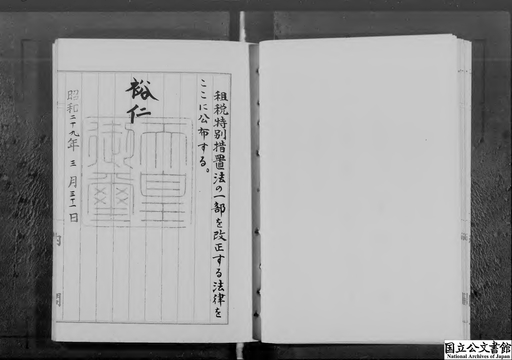 租税特別措置法の一部を改正する法律を
ここに公布する。
裕仁
天皇
御璽
昭和二十九年三月三十一日
国立公文書館
National Archives of Japan